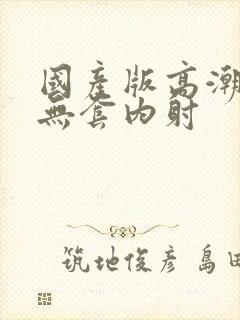 國産版高潮
無套内射
筑地俊彦 島田